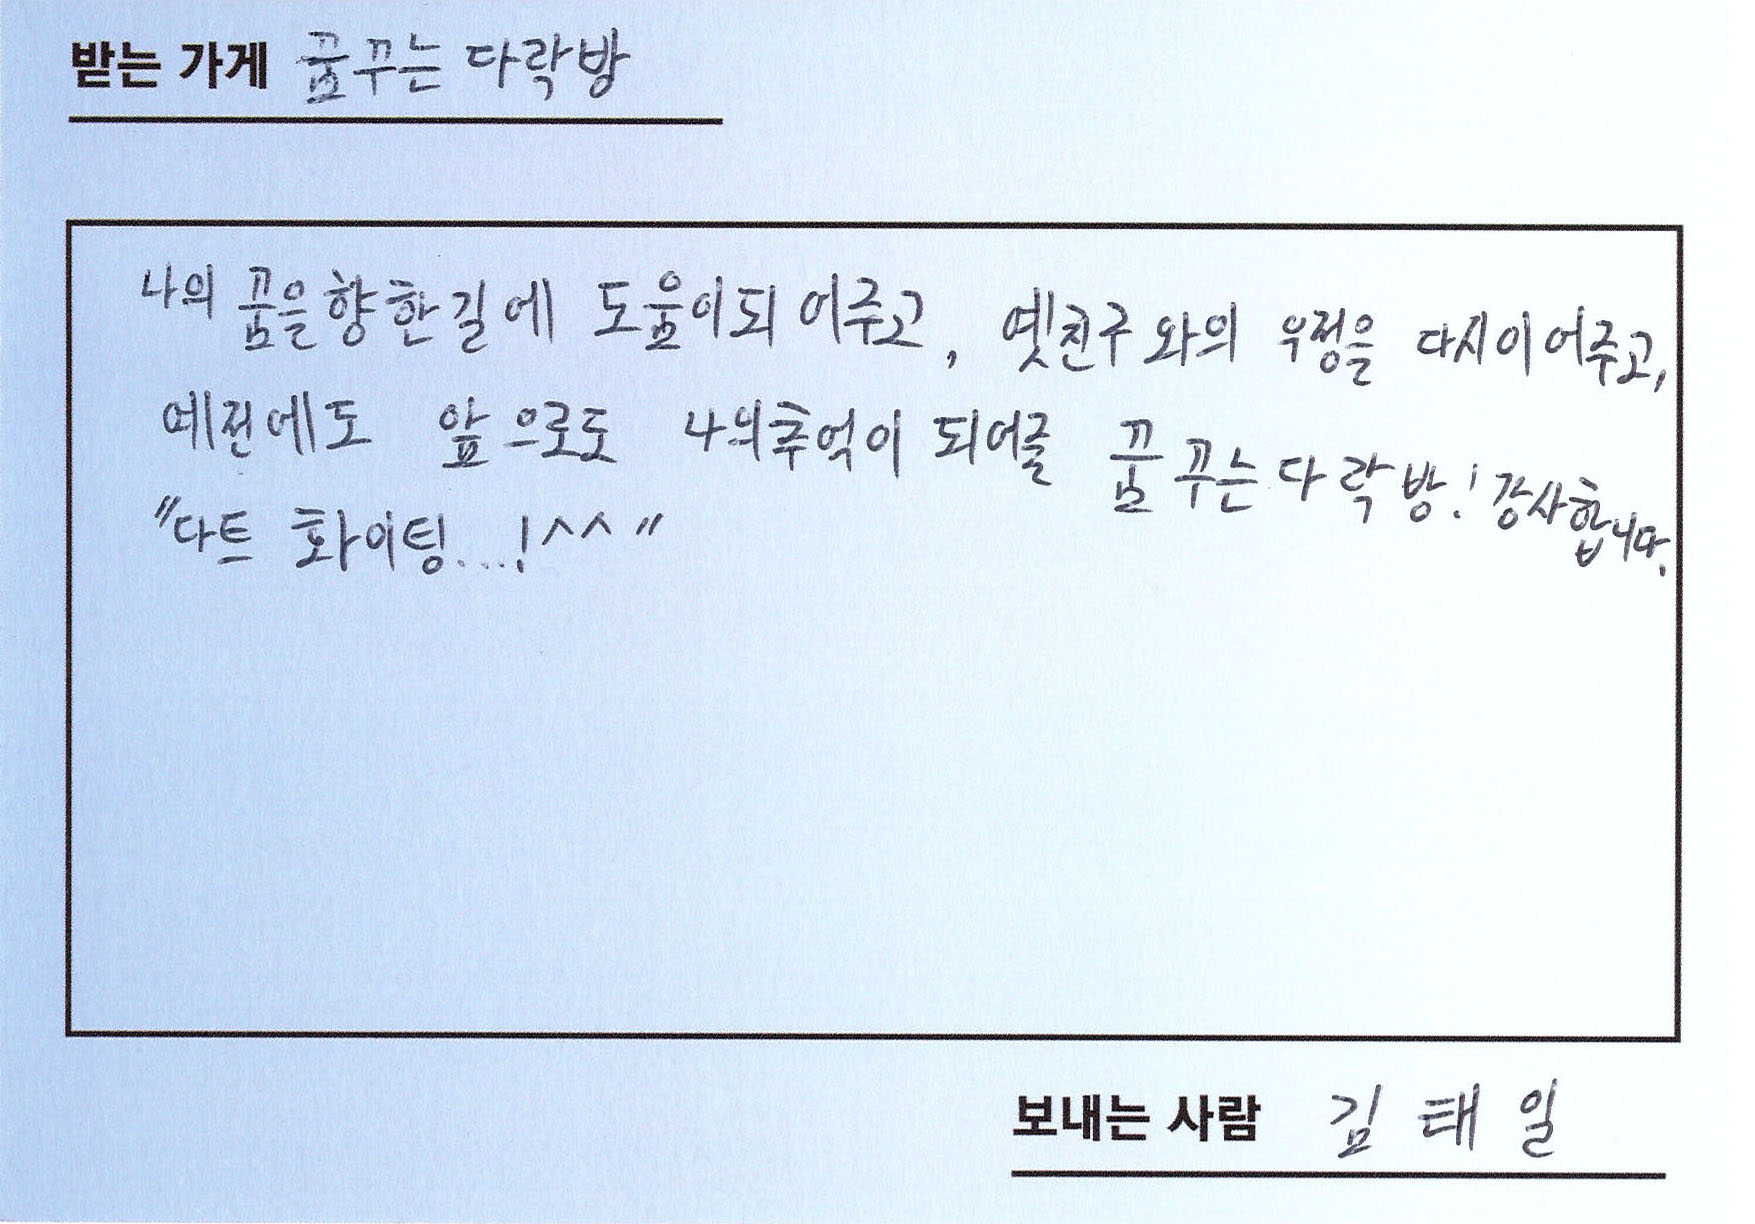 받는 가게 꿈꾸는 다락방
나의 꿈을 향한길에 도움이되어주고, 옛친구와의 우정을 다시이어주고,
예전에도 앞으로도 나의추억이 되어줄 꿈꾸는다락방! 감사합니다.
"다트 화이팅...!^^"
보내는 사람 김태일